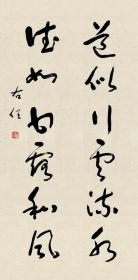 道似行雲流水
德如甘露和風
右任